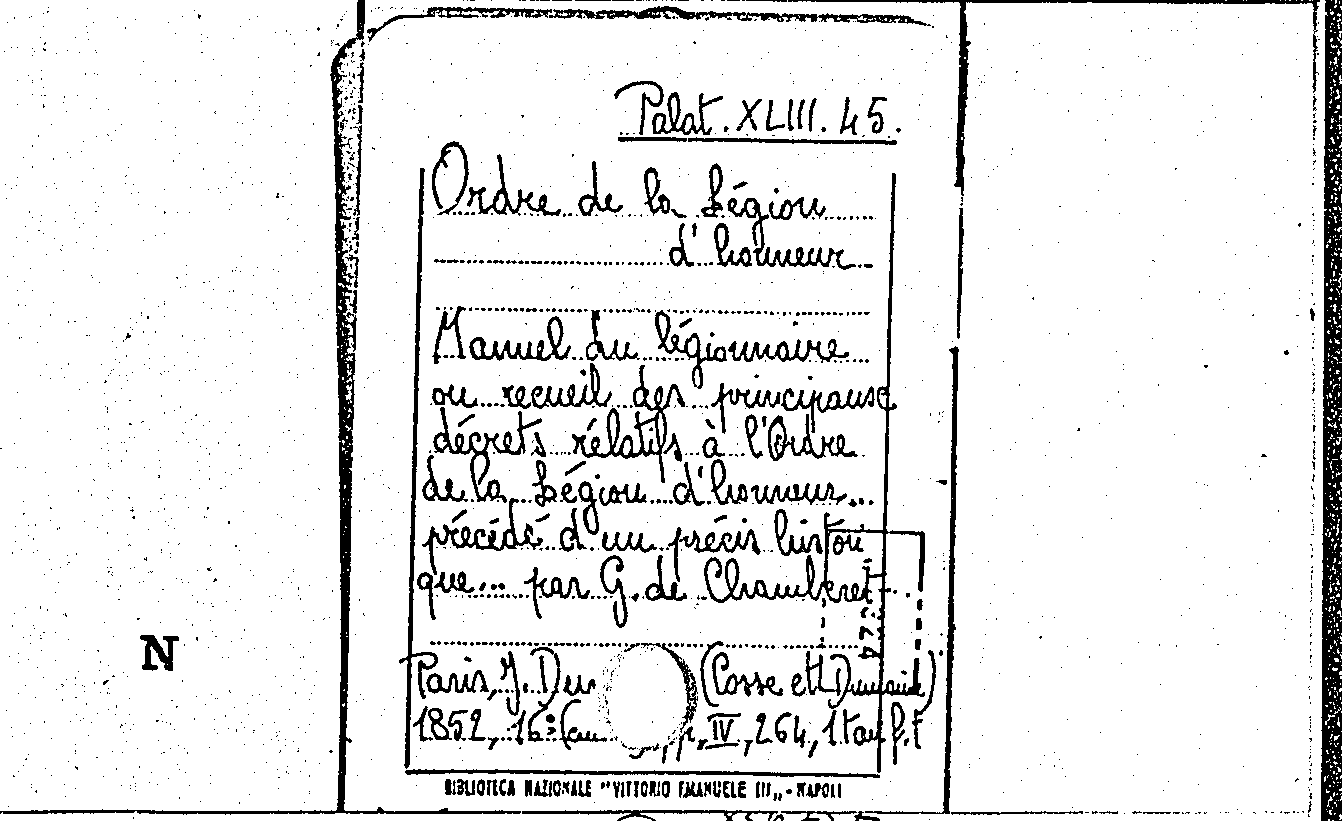 Palat. XLIII. 45.
Ordre de la Légion
d'honneur
Manuel du légionnaire
ou recueil des principaux
décrets rélatifs à l'Ordre
de la Légion d'honneur...
précédé d'un précis histori
que... par G. de Chamberet...
Paris, J. Du (Cosse et Dumaine)
1852, 16º p. IV, 264, 1 tav. f.t
N
BIBLIOTECA NAZIONALE "VITTORIO EMANUELE III" - NAPOLI